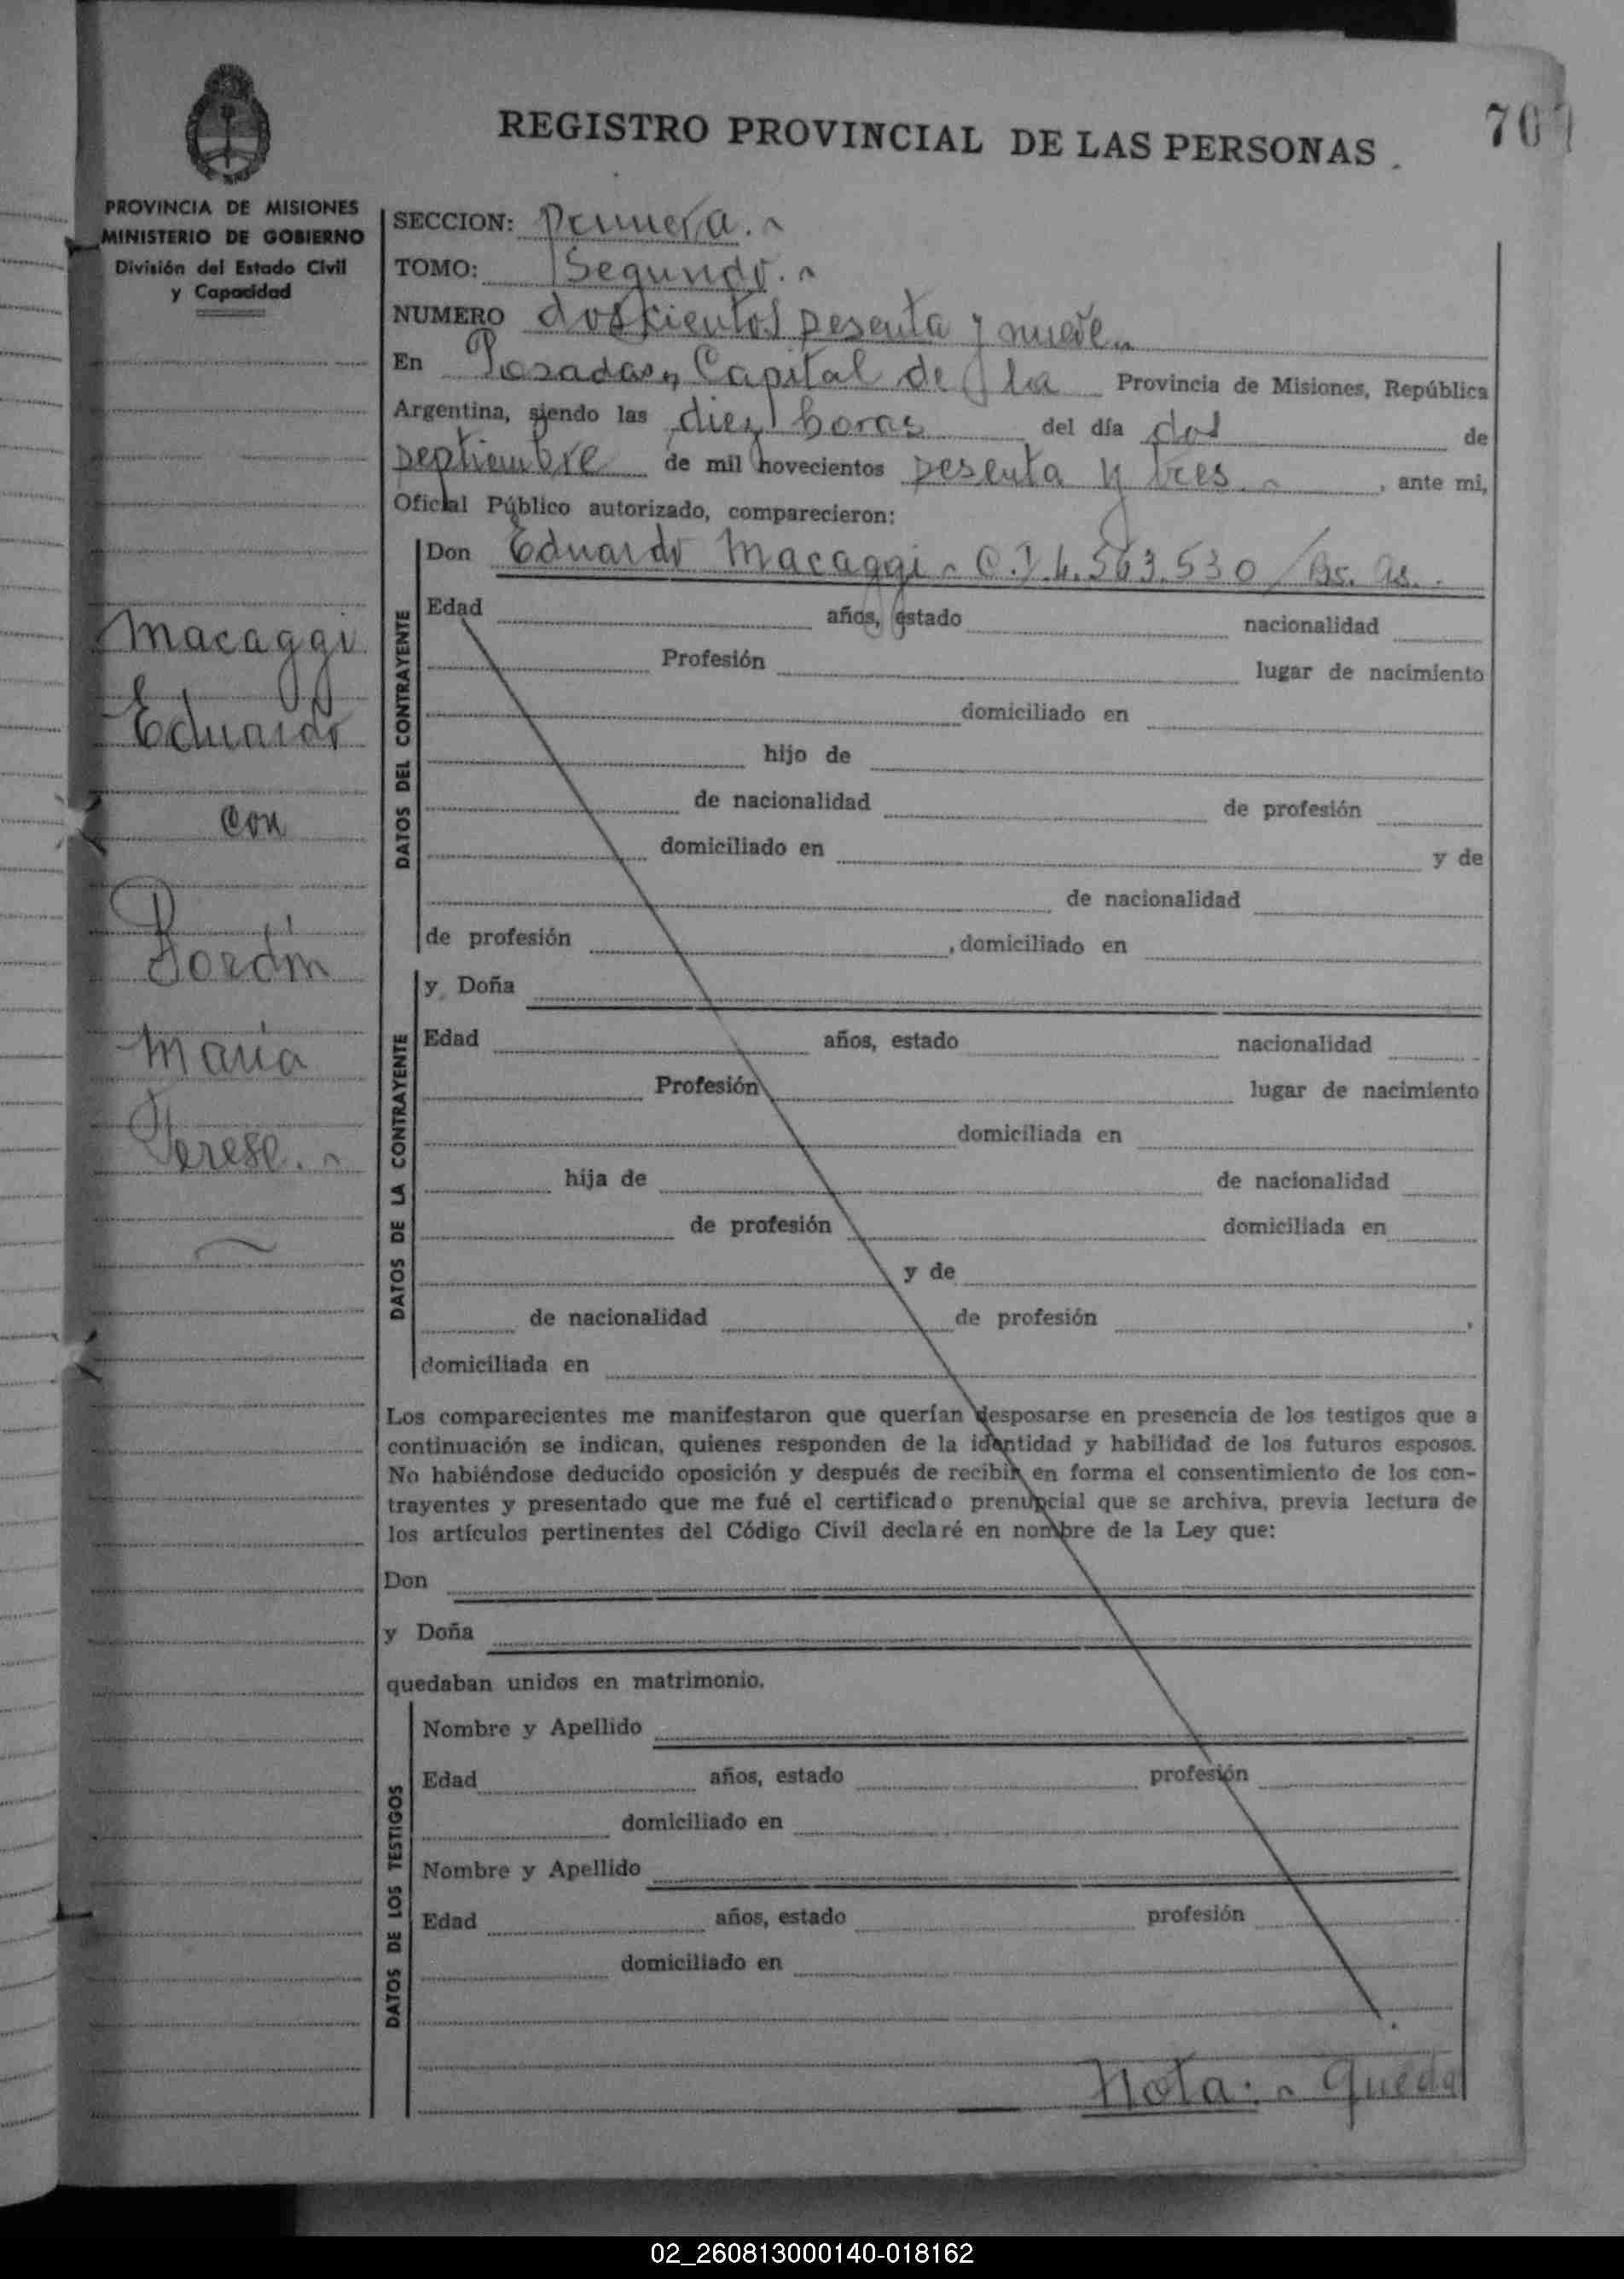 REGISTRO PROVINCIAL DE LAS PERSONAS
PROVINCIA DE MISIONES
MINISTERIO DE GOBIERNO
División del Estado Civil
y Capacidad
SECCION: Primera.
TOMO: Segundo.
NUMERO doscientos sesenta y nueve
En Posadas, Capital de la Provincia de Misiones, República
Argentina, siendo las diez horas del día dos de
septiembre de mil novecientos sesenta y tres. , ante mi,
Oficial Público autorizado, comparecieron:
Macaggi
Eduardo
con
María
Teresa.
DATOS DEL CONTRAYENTE
Don Eduardo Macaggi C.I 4.563.530 / Bs. As.
Edad años, estado nacionalidad
Profesión lugar de nacimiento
domiciliado en
hijo de
de nacionalidad de profesión
domiciliado en y de
de nacionalidad
de profesión , domiciliado en
DATOS DE LA CONTRAYENTE
y Doña
Edad años, estado nacionalidad
Profesión lugar de nacimiento
domiciliada en
hija de de nacionalidad
de profesión domiciliada en
y de
de nacionalidad de profesión ,
domiciliada en
Los comparecientes me manifestaron que querían desposarse en presencia de los testigos que a
continuación se indican, quienes responden de la identidad y habilidad de los futuros esposos.
No habiéndose deducido oposición y después de recibir en forma el consentimiento de los con-
trayentes y presentado que me fué el certificado prenupcial que se archiva, previa lectura de
los artículos pertinentes del Código Civil declaré en nombre de la Ley que:
Don
y Doña
quedaban unidos en matrimonio.
DATOS DE LOS TESTIGOS
Nombre y Apellido
Edad años, estado profesión
domiciliado en
Nombre y Apellido
Edad años, estado profesión
domiciliado en
Nota: Queda
02_260813000140-018162